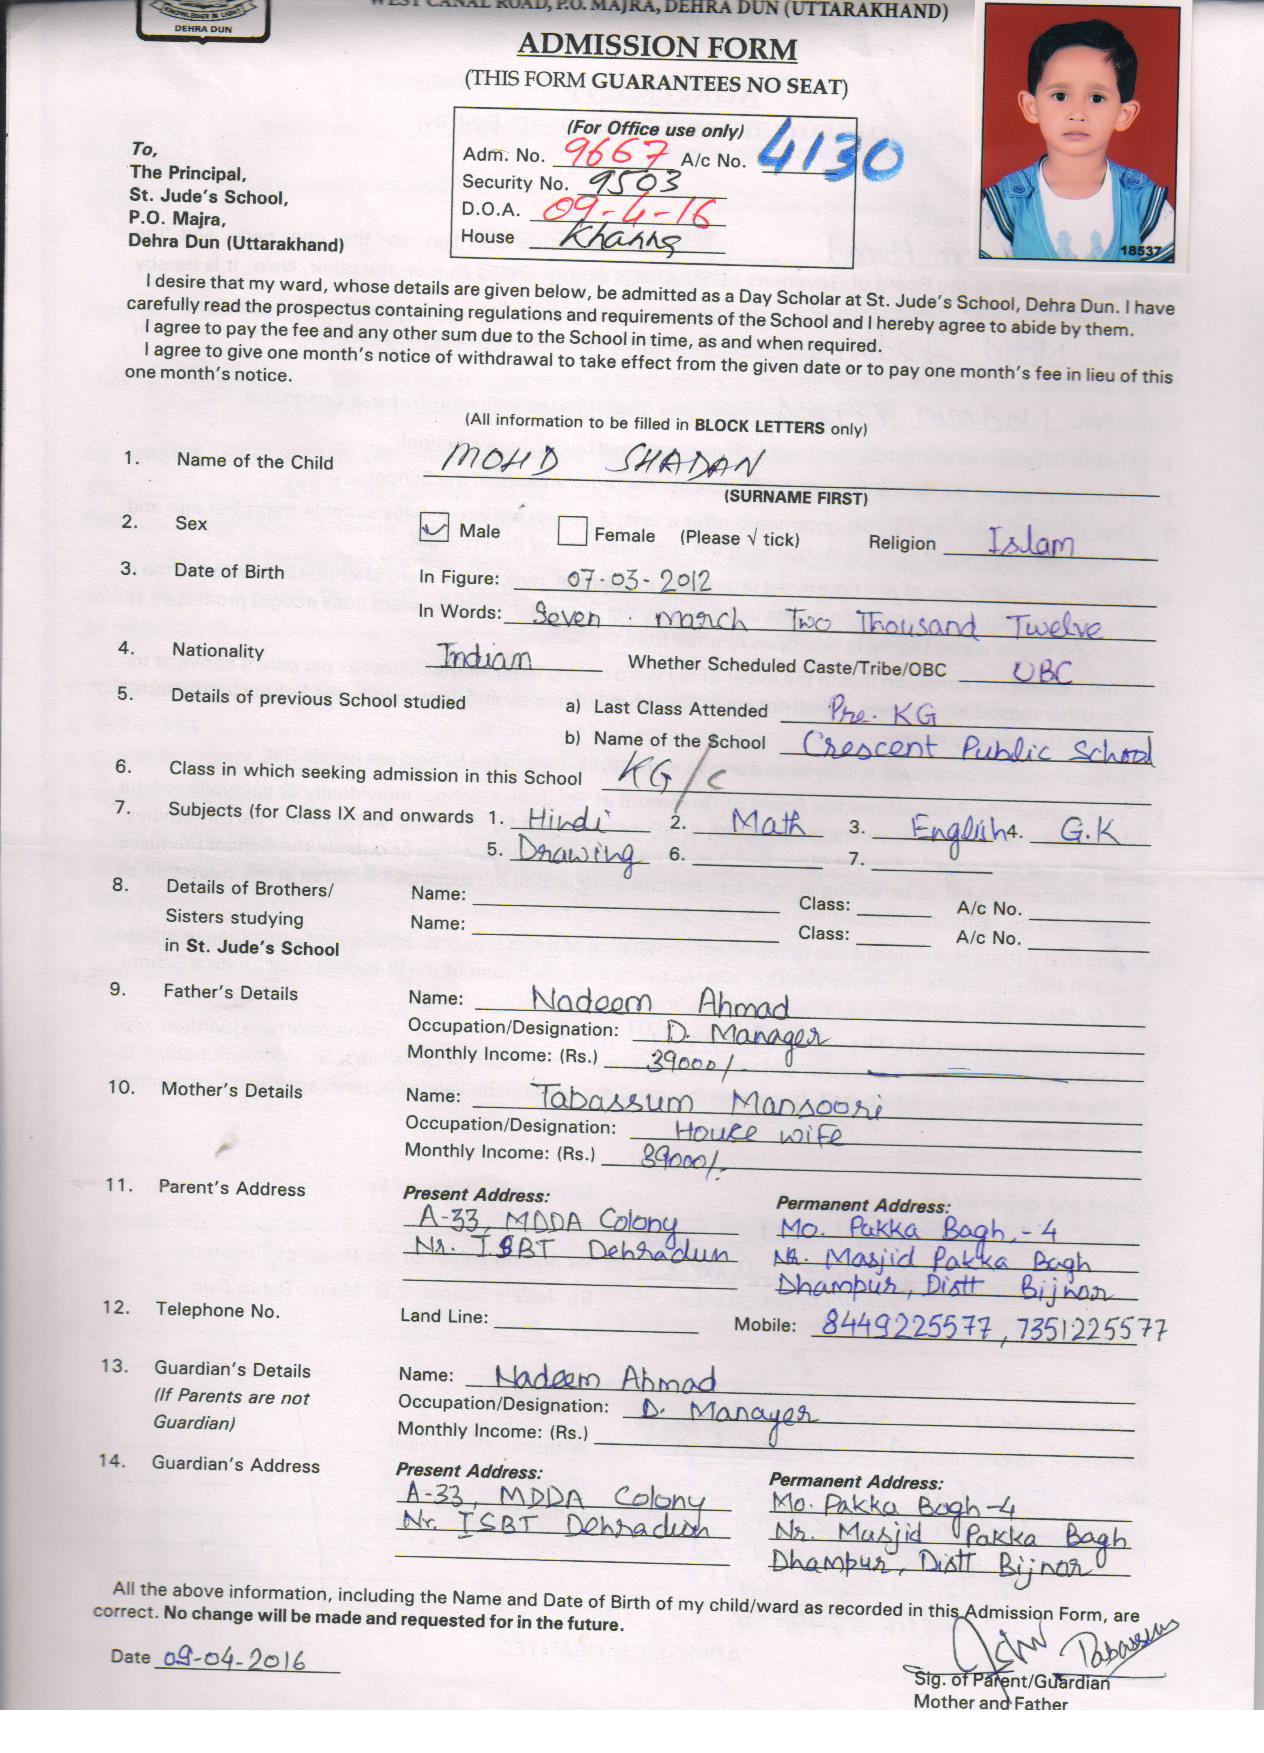 KNOWLEDGE & LIGHT
DEHRA DUN
WEST CANAL ROAD, P.O. MAJRA, DEHRA DUN (UTTARAKHAND)
ADMISSION FORM
(THIS FORM GUARANTEES NO SEAT)
(For Office use only)
Adm. No. 9667 A/c No. 4130
Security No. 9503
D.O.A. 09-4-16
House Khanna
18537
To,
The Principal,
St. Jude's School,
P.O. Majra,
Dehra Dun (Uttarakhand)
I desire that my ward, whose details are given below, be admitted as a Day Scholar at St. Jude's School, Dehra Dun. I have
carefully read the prospectus containing regulations and requirements of the School and I hereby agree to abide by them.
I agree to pay the fee and any other sum due to the School in time, as and when required.
I agree to give one month's notice of withdrawal to take effect from the given date or to pay one month's fee in lieu of this
one month's notice.
(All information to be filled in BLOCK LETTERS only)
1. Name of the Child MOHD SHADAN
(SURNAME FIRST)
2. Sex Male Female (Please √ tick) Religion Islam
3. Date of Birth In Figure: 07-03-2012
In Words: Seven. march Two Thousand Twelve
4. Nationality Indian Whether Scheduled Caste/Tribe/OBC OBC
5. Details of previous School studied a) Last Class Attended Pre. KG
b) Name of the School Crescent Public School
6. Class in which seeking admission in this School KG/C
7. Subjects (for Class IX and onwards 1. Hindi 2. Math 3. English 4. G.K
5. Drawing 6. 7.
8. Details of Brothers/ Name: Class: A/c No.
Sisters studying Name: Class: A/c No.
in St. Jude's School
9. Father's Details Name: Nadeem Ahmad
Occupation/Designation: D. Manager
Monthly Income: (Rs.) 39000/-
10. Mother's Details Name: Tabassum Mansoori
Occupation/Designation: House wife
Monthly Income: (Rs.) 39000/-
11. Parent's Address Present Address: Permanent Address:
A-33, MDDA Colony Mo. Pakka Bagh,-4
Nr. ISBT Dehradun Nr. Masjid Pakka Bagh
Dhampur, Distt Bijnor
12. Telephone No. Land Line: Mobile: 8449225577, 7351225577
13. Guardian's Details Name: Nadeem Ahmad
(If Parents are not Occupation/Designation: D. Manager
Guardian) Monthly Income: (Rs.)
14. Guardian's Address Present Address: Permanent Address:
A-33, MDDA Colony Mo. Pakka Bagh-4
Nr. ISBT Dehradun Nr. Masjid Pakka Bagh
Dhampur, Distt Bijnor
All the above information, including the Name and Date of Birth of my child/ward as recorded in this Admission Form, are
correct. No change will be made and requested for in the future.
Date 09-04-2016 Tabassum
Sig. of Parent/Guardian
Mother and Father